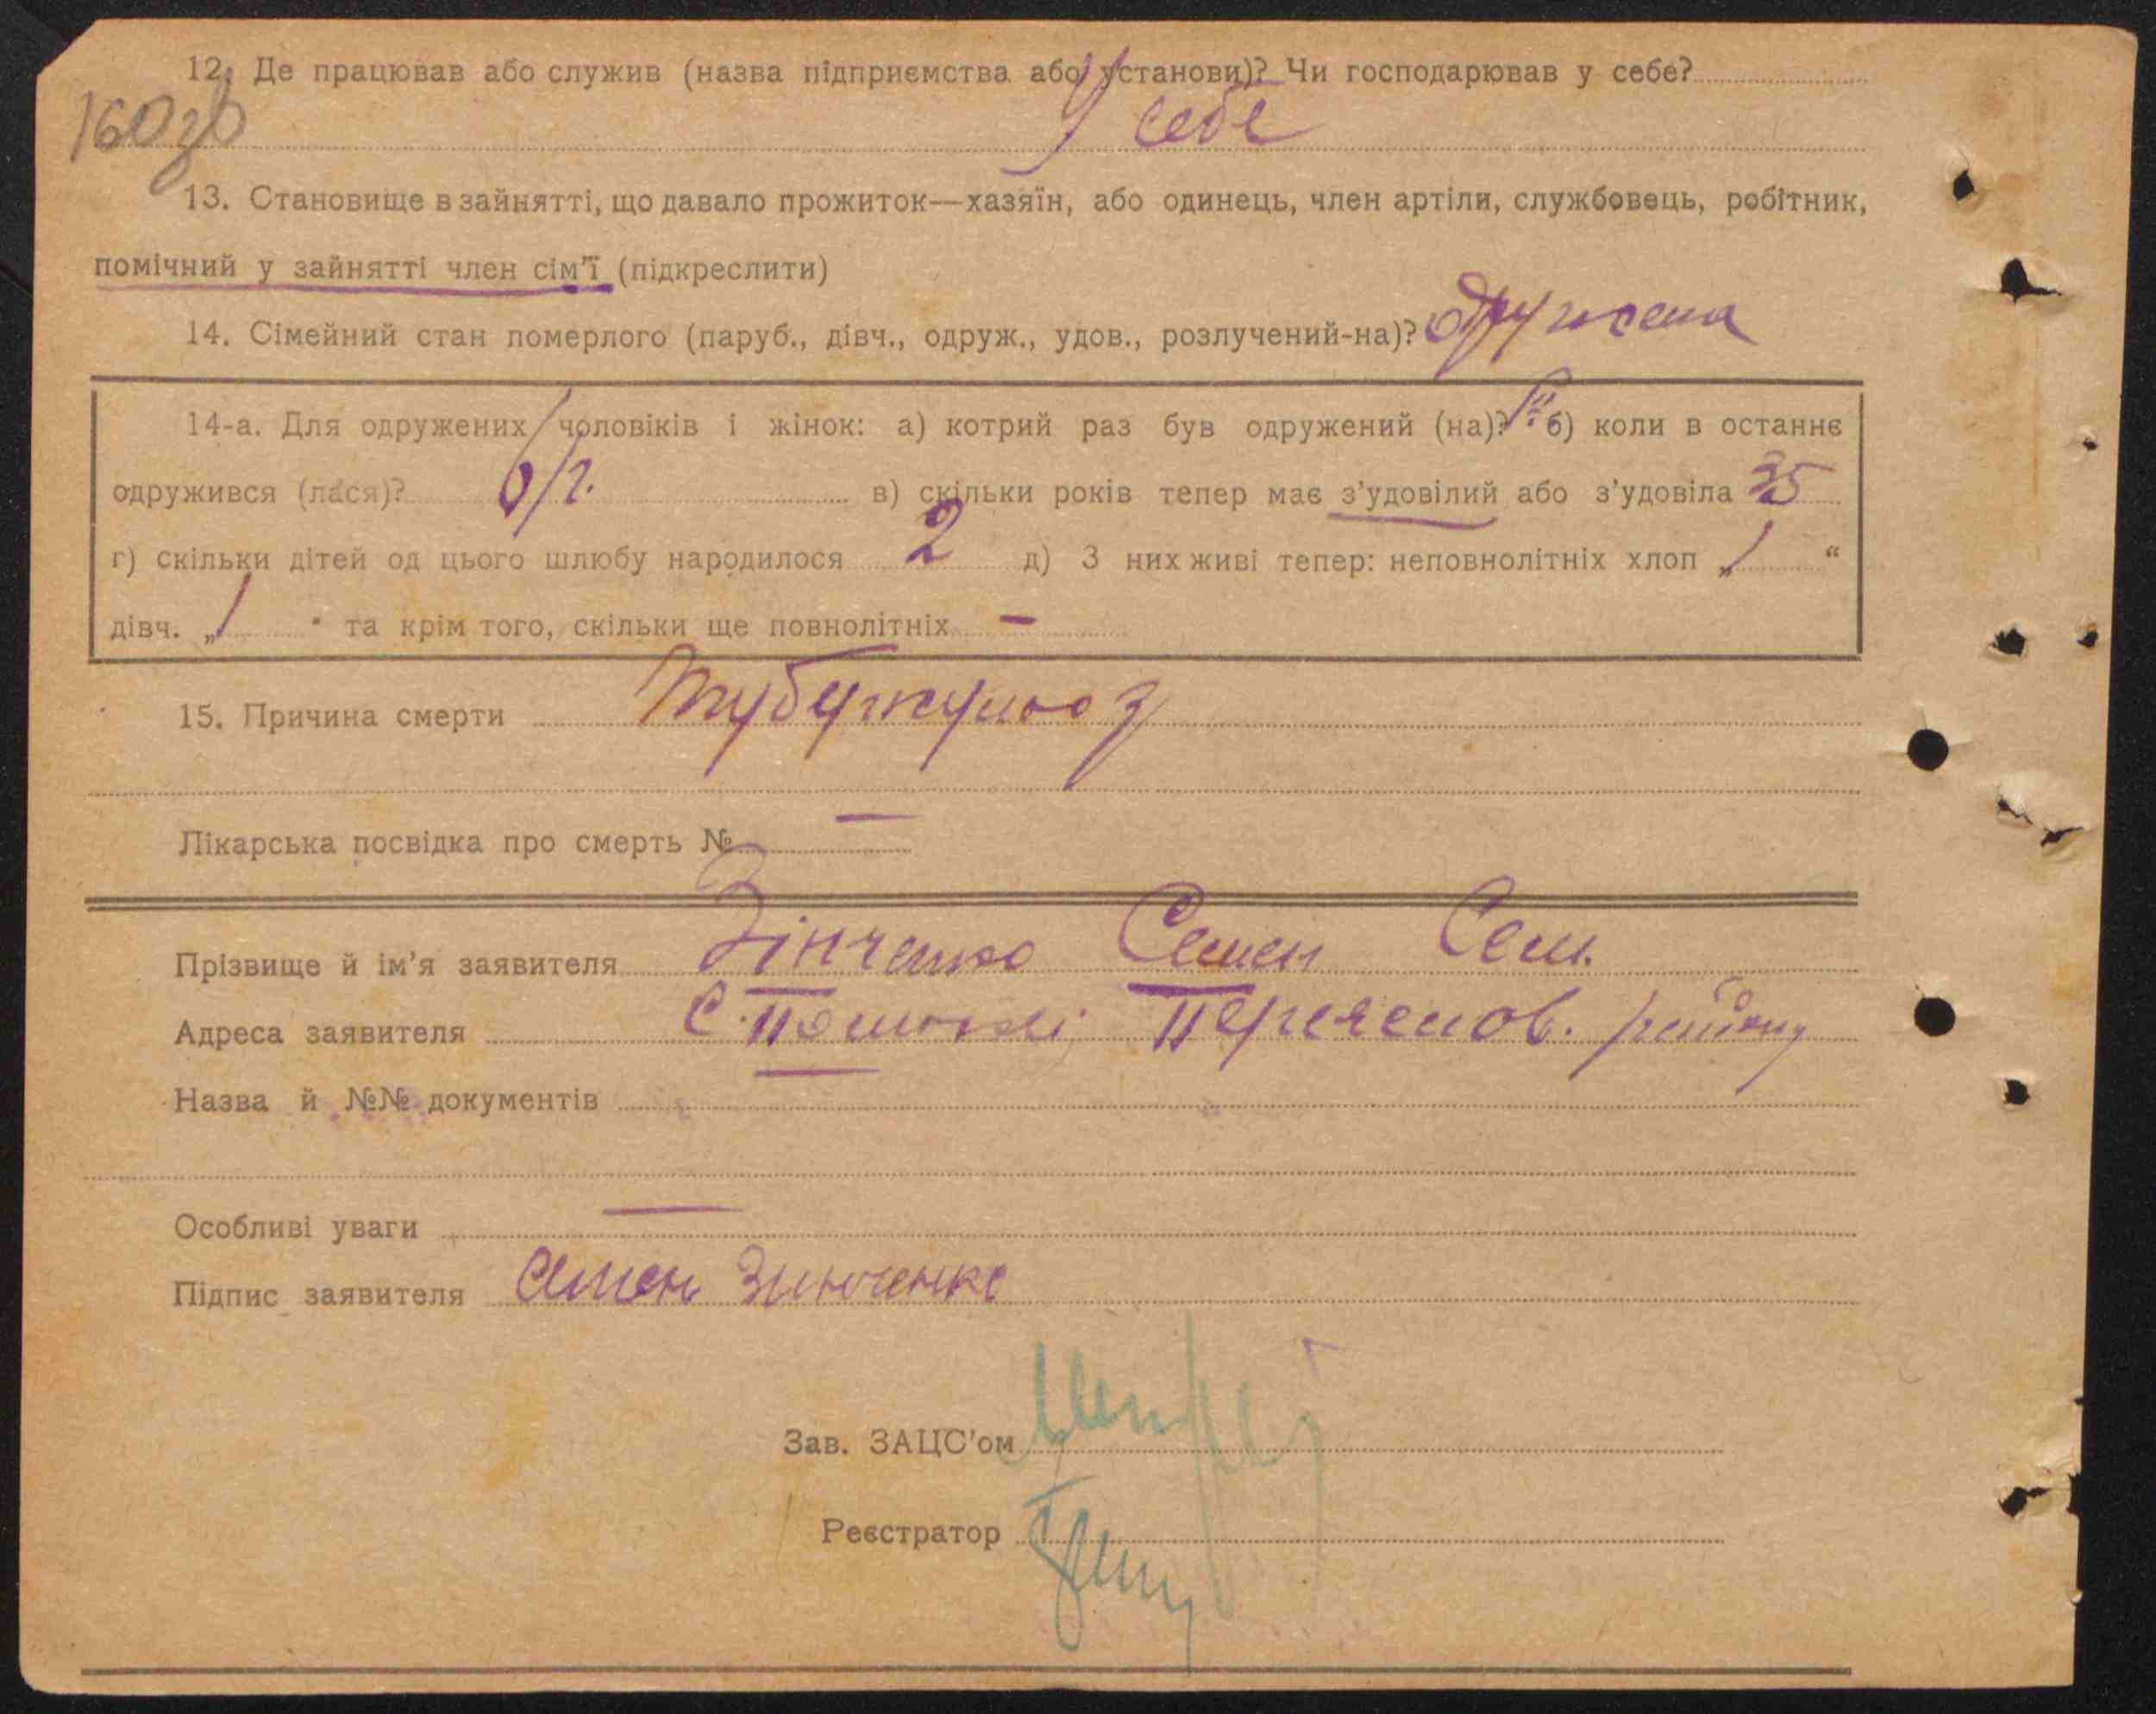 12. Де працював або служив (назва підприємства або установи)? Чи господарював у себе?
160зв
У себе
13. Становище в зайнятті, що давало прожиток—хазяїн, або одинець, член артіли, службовець, робітник,
помічний у зайнятті член сім’ї (підкреслити)
14. Сімейний стан померлого (паруб., дівч., одруж., удов., розлучений-на)? одружена
14-а. Для одружених чоловіків і жінок: а) котрий раз був одружений (на)? б) коли в останнє
одружився (лася)? в) скільки років тепер має з’удовілий або з’удовіла 35
г) скільки дітей од цього шлюбу народилося 2 д) З них живі тепер: неповнолітніх хлоп „1“
дівч. „1“ та крім того, скільки ще повнолітніх —
15. Причина смерти туберкульоз
Лікарська посвідка про смерть № —
Прізвище й ім’я заявителя Зінченко Семен Сем.
Адреса заявителя С. району
Назва й №№ документів
Особливі уваги —
Підпис заявителя Семен Зинченко
Зав. ЗАЦС’ом
Реєстратор